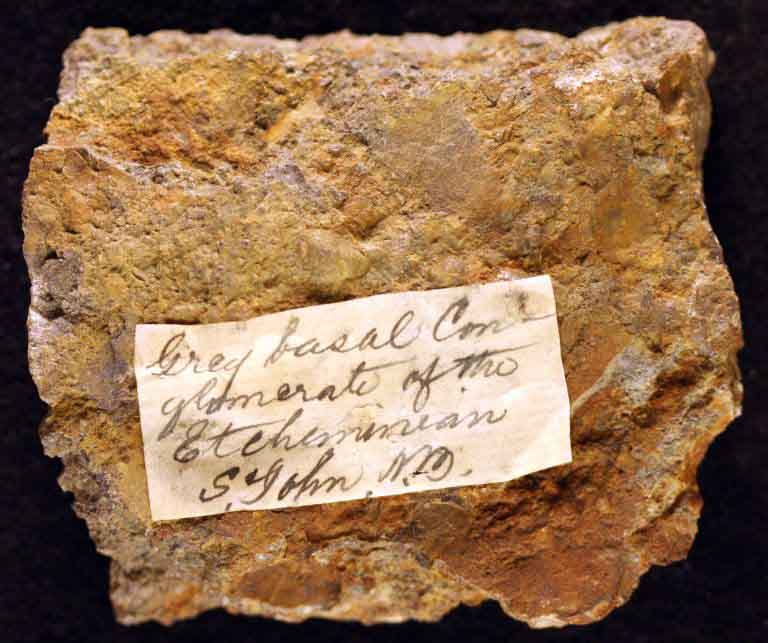 Grey basal Con-
glomerate of the
Etcheminian
S. John, N.B.